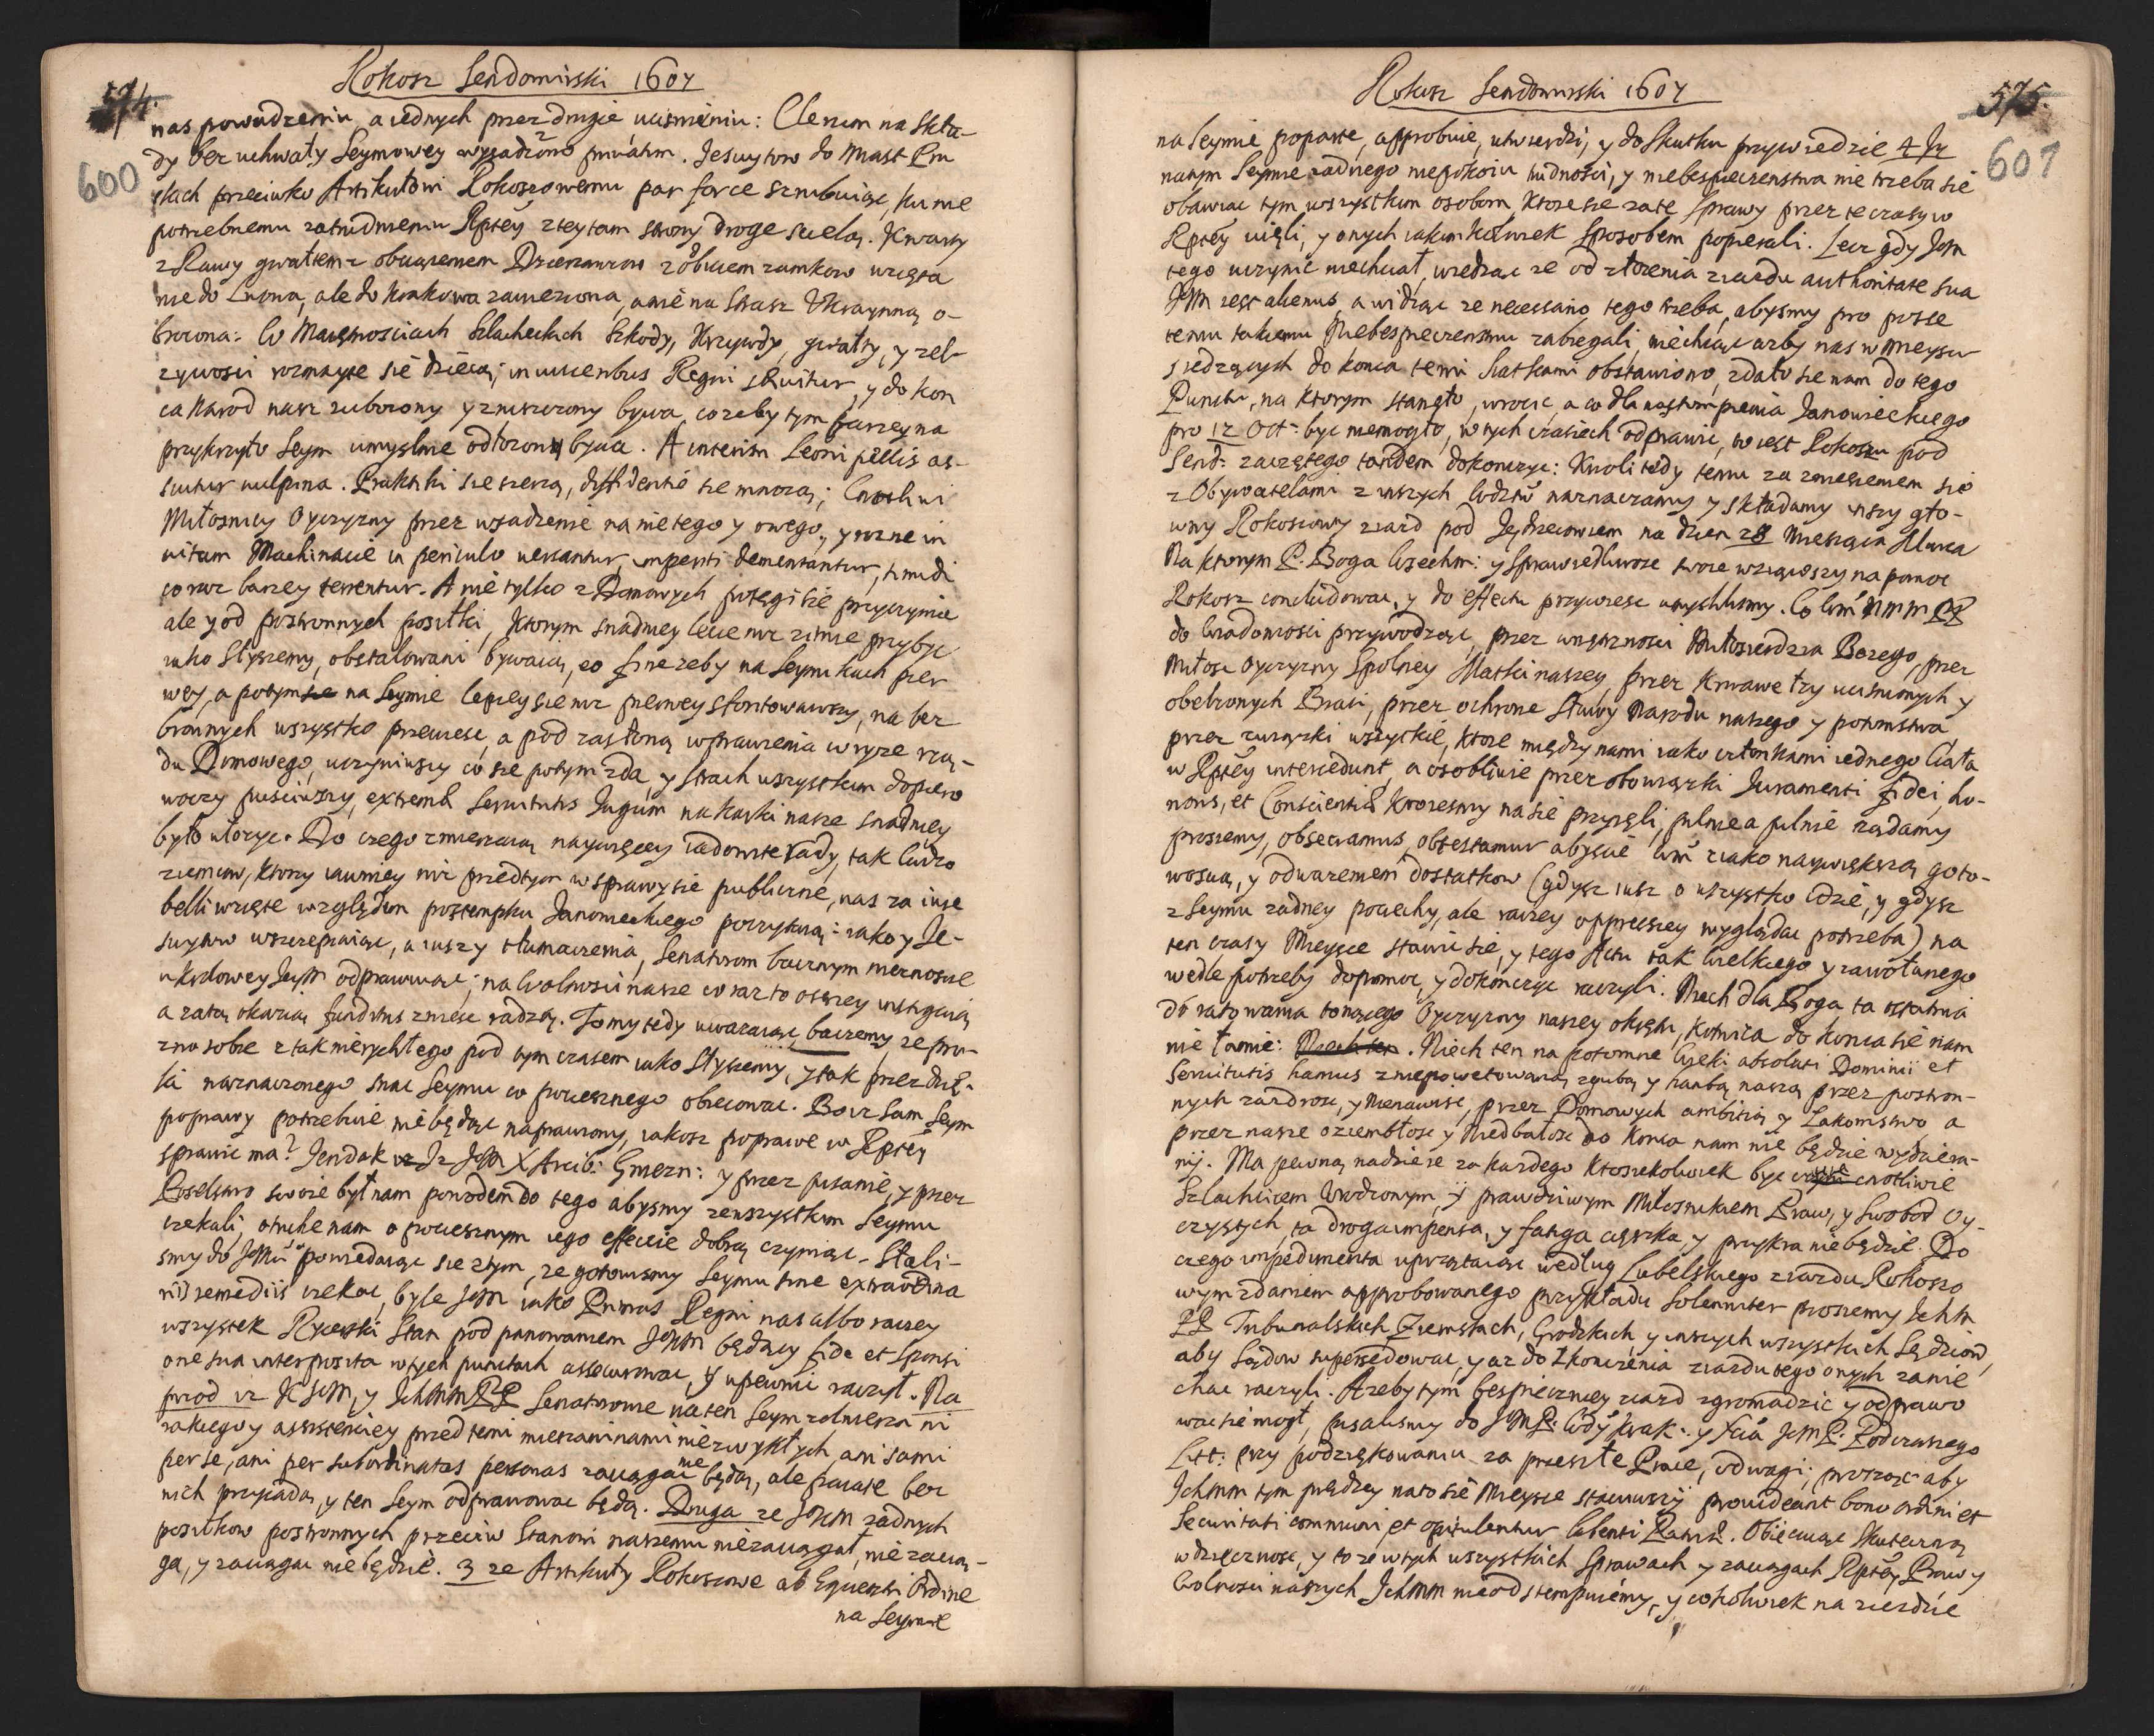 Rokosz Sendomirski 1607
574.
600
nas powadzeniu, a iednych przez drugie uciśnieniu: Clerum na Skła-
dy bez uchwały Seymowey wysadzono privatim. Jesuytow do Miast Pru
skich przeciwko Artikułowi Rokoszowemu par force szrubuiąc, ku nie
potrzebnemu zatrudnieniu Rptey z tey tam strony droge scielą. Kwarty
z Rawy gwałtem z obciążeniem Dzierzawcow z obiciem zamkow wzięta
nie do Lwowa, ale do Krakowa zawieziona, a nie na Straż Ukraynną o-
brocona: W Maiętnościach Szlacheckich Szkody, Krzywdy, gwałty, y zel-
zywości rozmayte sie dzieią; in visceribus Regni
ca Narod nasz zuborony y zniszczony bywa, co zeby tym barzey na
przykrzyło Seym umyslnie odłozony bywa. A interim Leoni pellis as-
suitur vulpina. Praktyki sie szerzą, diffidentie sie mnozą; Cnotliwi
Miłosnicy Oyczyzny przez wsadzenie na nie tego y owego, y rozne in
vitam Machinacie in periculo versantur, imperiti dementantur, timidi
coraz barzey terrentur. A nie tylko z Domowych potęgi sie przyczynia
ale y od postronnych posiłki, ktorym snadniey lecie niz zimie przybyc
iako słyszemy, obstalowani bywaią, eo fine zeby na Seymikach pier
wey, a potym na Seymie lepiey sie niz pierwey sfortowawszy, na bez
bronnych wszystko przewiesc, a pod zasłoną wprawienia w ryze rzą-
du Domowego, uczyniwszy co sie potym zda, y strach wszystkim dopiero
w oczy puściwszy, extremae Servitutis Jugum na karki nasze snadniey
było włozyc. Do czego zmierzaią naywięcey iadowite rady, tak cudzo
ziemcow, ktorzy iawniey niz przedtym w sprawy sie publiczne, nas za iure
belli wzięte względem postempku Janowieckiego poczytaią: iako y Je-
suytow wszczepiaiąc, a iuszy tłumaczenia, Senatorom bacznym nieznosne
u Krolowey JeyM odprawuiąc; na Wolnosci nasze coraz to ostrzey nastepuią
a zatą okazią funditus zniesc radzą. To my tedy uwazaiąc, baczemy, ze pro-
zno sobie z tak nierychłego pod tym czasem iako słyszemy, y tak przez dłuż-
szi naznaczonego snac Seymu co pociesznego obiecowac. Bo iz sam Seym
poprawy potrzebuie nie będąc naprawiony, iakosz poprawe w Rptey
sprawic ma? Jendak Iz JeM X Arcib: Gniezn: y przez pisanie, y przez
Poselstwo swoie był nam powodem do tego abysmy ze wszystkim Seymu
czekali, otuche nam o pociesznym iego effecie dobrą czyniąc. Stali-
smy do JeMci powiedaiąc sie z tym, ze gotowismy Seymu sine extraordina
riis remediis czekac, byle JeM iako Primas Regni nas albo raczey
wszystek Rycerski Stan pod panowaniem JKM będący fide et Sponsi
one sua interposita w tych punctach assecurowac, y upewnic raczył. Na
przod iz KJeM, y IchMM PP Senatorowie na ten Seym zolnierza ni
iakiego y assistenciey przed temi mieszaninami niezwykłych, ani sami
per se, ani per subordinatas personas zaciągac nie będą, ale privatę bez
nich przyiadą, y ten Seym odprawowac będą. Druga ze JKM zadnych
posiłkow postronnych przeciw Stanowi naszemu nie zaciągał, nie zacią-
ga, y zaciągac nie będzie. 3 ze Artikuły Rokoszowe ab Equestri Ordine
na Seymie
Rokosz Sendomirski 1607
575.
601
na Seymie poparte, approbuie, utwierdzi, y do skutku przywiedzie 4 Iz
na tym Seymie zadnego niepokoiu trudności, y niebespieczenstwa nie trzeba sie
obawiac tym wszystkim osobom, ktore sie za te sprawy przez te czasy w
Rptey uięli, y onych iakimkolwiek sposobem popierali. Lecz gdy JeM
tego uczynic niechciał, wiedząc ze od złozenia ziazdu authoritate sua
JeM iest alienus, a widząc ze necessario tego trzeba, abysmy pro posse
temu takiemu Niebespieczenstwu zabiegali, niechcąc azby nas w Mieyscu
siedzących do konca temi siatkami obstawiono, zdało sie nam do tego
Punctu, na ktorym stanęło, wrocic, a co dla nastompienia Janowieckiego
pro 12 Oct: byc niemogło, w tych czasiech odprawic, to iest Rokoszu pod
Send: zaczętego tandem dokonczyc: Kwoli tedy temu za zniesieniem sie
z Obywatelami z inszych Wodztw naznaczamy y składamy wszy gło-
wny Rokoszowy ziazd pod Jędrzeiowem na dzien 28 Miesiąca Marca
Na ktorym P. Boga Wszechm: y Sprawiedliwosc swoie wziąwszy na pomoc
Rokosz concludowac, y do effectu przywiesc umyslilismy. Co Wm MMM PP
do Wiadomosci przywodząc, przez wnętrznosci Miłosierdzia Bozego, przez
Miłosc Oyczyzny Spolney Matki naszey, przez krwawe łzy ucisnionych y
obelzonych Braci, przez ochrone Sławy Narodu naszego y potomstwa
przez zwiąski wszystkie, ktore między nami iako członkami iednego Ciała
w Rptey intercedunt, a osobliwie przez obowiązki Juramenti fidei, ho-
noris, et Conscientiae ktoresmy na sie przyięli, pilnie a pilnie rządamy
prosiemy, obsecramus, obtestamur abyscie Wm z iako naywiększą goto-
woscią, y odwazeniem dostatkow (gdysz iusz o wszystko idzie, y gdysz
z Seymu zadney pociechy, ale raczey oppressiey wyglądac potrzeba) na
ten czas y Mieysce stawic sie, y tego Actu tak Wielkiego y zawołanego
wedle potrzeby dopomoc, y dokonczyc raczyli. Niech dla Boga ta ostatnia
do ratowania tonącego Oyczyzny naszey okrętu, kotwica do konca sie nam
nie łamie: Niech ten. Niech ten na potomne Wieki absoluti Dominii et
Servitutis hamus z niepowetowaną zgubą y hanbą naszą przez postron-
nych zazdrosc, y Nienawisc, przez Domowych ambitią y Łakomstwo a
przez nasze oziembłosc y Niedbałosc do konca nam nie będzie wydziera-
nij. Ma pewną nadzieie ze kazdego ktoszkolwiek byc cnotliwie
Szlachcicem Urodzonym, y prawdziwym Miłosnikiem Praw, y Swobod Oy-
czystych, ta droga impensa, y fatyga cięszka, y przykra nie będzie. Do
czego impedimenta uprzątaiąc według Lubelskiego ziazdu Rokoszo
wym zdaniem approbowanego przykładu Solenniter prosiemy IchM
PP Tribunalskich Ziemskich, Grodzkich, y inszych wszystkich Sędziow,
aby Sądow supersedowac, y az do Zkonczenia ziazdu tego onych zanie
chac raczyli. A zeby tym bespieczniey ziazd zgromadzic y odprawo
wac sie mogł, pisalismy do JeM P. Wdy Krak: y Xcia JeM P. Podczaszego
Litt: przy podziękowaniu za przeszłe Prace, odwagi; prosząc aby
IchMM tym prędzey na to sie Mieysce stawiwszy provideant bono ordini et
Securitati communi, et opitulentur labenti Patriae. Obiecuiąc skuteczną
wdzięcznosc, y to ze w tych wszystkich Sprawach y zaciągach Rptey Praw y
Wolnosci naszych IchMM nie odstempuiemy, y cokolwiek na zieździe